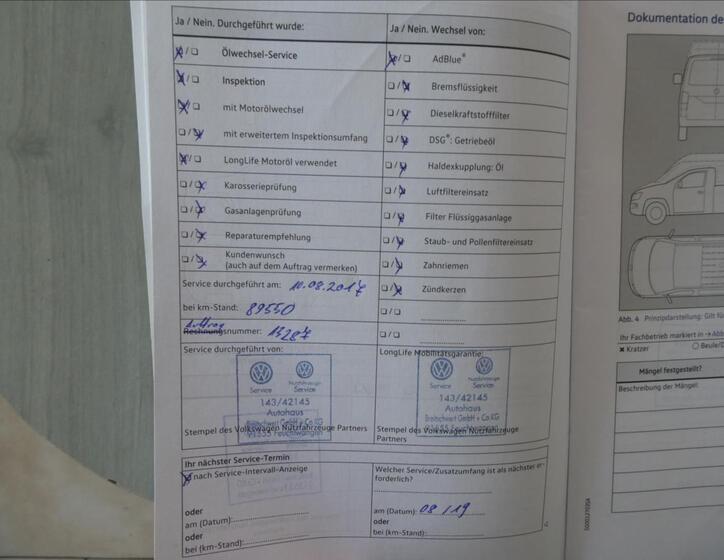 Ja / Nein. Durchgeführt wurde:
Ölwechsel-Service
Inspektion
mit Motorölwechsel
mit erweitertem Inspektionsumfang
LongLife Motoröl verwendet
Karosserieprüfung
Gasanlagenprüfung
Reparaturempfehlung
Kundenwunsch
(auch auf dem Auftrag vermerken)
Service durchgeführt am: 10.08.2017
bei km-Stand: 89550
Auftrag
Rechnungsnummer: 15287
Service durchgeführt von:
Service Nutzfahrzeuge Service
143/42145
Autohaus
Breitschwert GmbH + Co.KG
91555 Feuchtwangen
Stempel des Volkswagen Nutzfahrzeuge Partners
Ja / Nein. Wechsel von:
AdBlue®
Bremsflüssigkeit
Dieselkraftstofffilter
DSG®: Getriebeöl
Haldexkupplung: Öl
Luftfiltereinsatz
Filter Flüssiggasanlage
Staub- und Pollenfiltereinsatz
Zahnriemen
Zündkerzen
LongLife Mobilitätsgarantie:
Service Service
143/42145
Autohaus
Breitschwert GmbH + Co.KG
91555 Feuchtwangen
Stempel des Volkswagen Nutzfahrzeuge
Partners
Ihr nächster Service-Termin
nach Service-Intervall-Anzeige
oder
am (Datum):
oder
bei (km-Stand):
Welcher Service/Zusatzumfang ist als nächster er-
forderlich?
am (Datum): 08/19
oder
bei (km-Stand):
Dokumentation de
Abb. 4 Prinzipdarstellung: Gilt fü
Ihr Fachbetrieb markiert in → Abb
Kratzer Beule/D
Mängel festgestellt?
Beschreibung der Mängel: